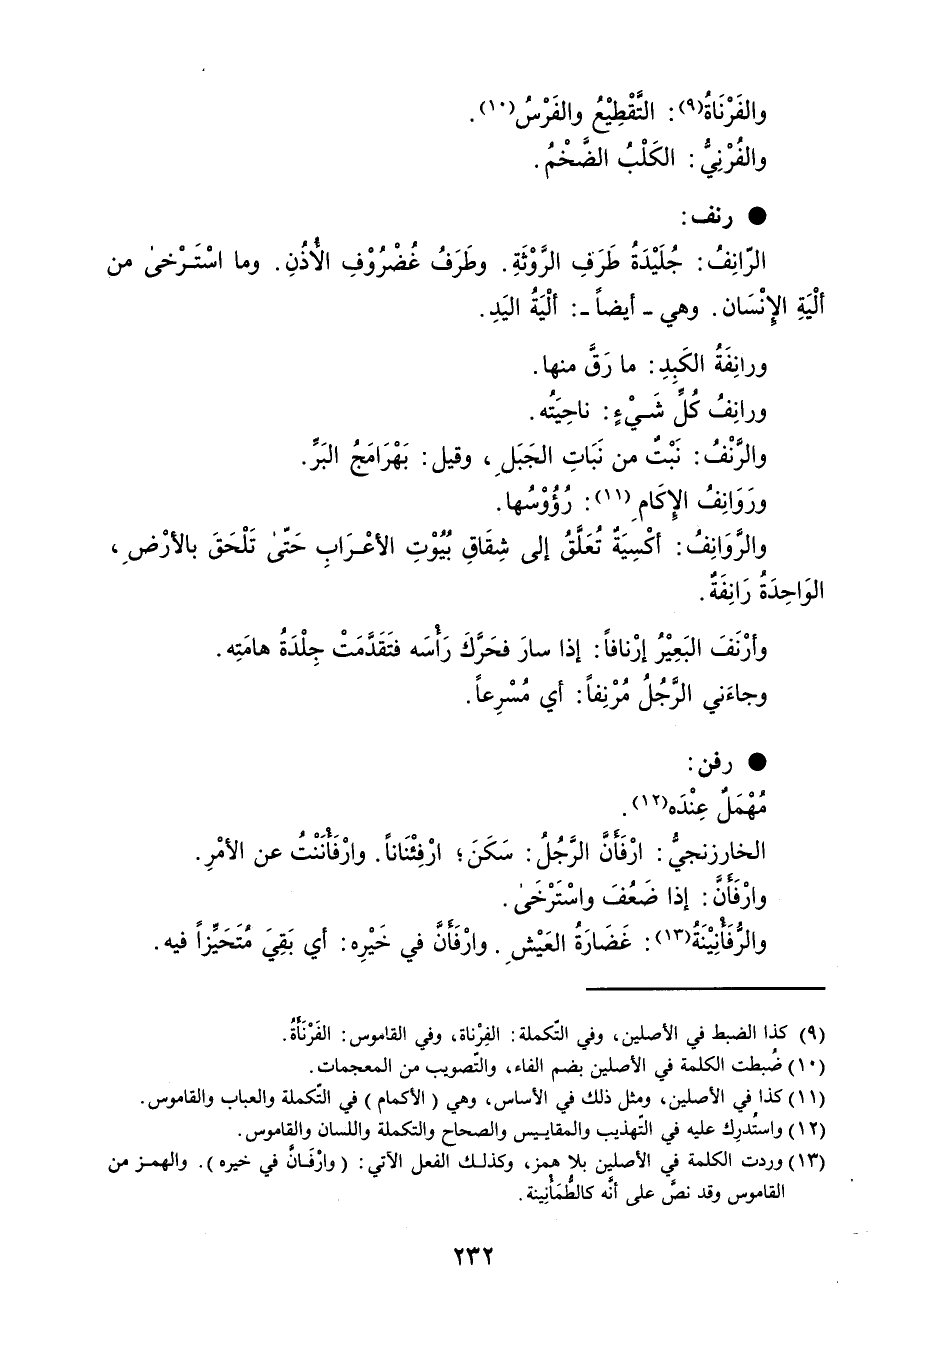 والفَرْنَاةُ(٩): التَّقْطِيْعُ والفَرْسُ(١٠).
والفُرْنِيُّ: الكَلْبُ الضَّخْمُ.
● رنف:
الرّانِفُ: جُلَيْدَةُ طَرَفِ الرَّوْثَةِ. وطَرَفُ غُضْرُوْفِ الأُذُنِ. وما اسْتَرْخىٰ من
ألْيَةِ الإِنْسَان. وهي ـ أيضاً ـ: ألْيَةُ اليَدِ.
ورانِفَةُ الكَبِدِ: ما رَقَّ منها.
ورانِفُ كُلِّ شَيْءٍ: ناحِيَتُه.
والرَّنْفُ: نَبْتٌ من نَبَاتِ الجَبَلِ، وقيل: بَهْرَامَجُ البَرِّ.
ورَوَانِفُ الإِكَامِ(١١): رُؤُوْسُها.
والرَّوَانِفُ: أكْسِيَةٌ تُعَلَّقُ إلى شِقَاقِ بُيُوْتِ الأعْرَابِ حَتّىٰ تَلْحَقَ بالأرْضِ،
الوَاحِدَةُ رَانِفَةٌ.
وأرْنَفَ البَعِيْرُ إرْنافاً: إذا سارَ فحَرَّكَ رَأْسَه فتَقَدَّمَتْ جِلْدَةُ هامَتِه.
وجاءَني الرَّجُلُ مُرْنِفاً: أي مُسْرِعاً.
● رفن:
مُهْمَلٌ عِنْدَه(١٢).
الخارزنجيُّ: ارْفَأَنَّ الرَّجُلُ: سَكَنَ؛ ارْفِئْناناً. وارْفَأْنَنْتُ عن الأمْرِ.
وارْفَأَنَّ: إذا ضَعُفَ واسْتَرْخَىٰ.
والرُّفَأْنِيْنَةُ(١٣): غَضَارَةُ العَيْشِ. وارْفَأَنَّ في خَيْرِه: أي بَقِيَ مُتَحَيِّزاً فيه.
(٩) كذا الضبط في الأصلين، وفي التّكملة: الفِرْناة، وفي القاموس: الفَرْنَأَةُ.
(١٠) ضُبطت الكلمة في الأصلين بضم الفاء، والتّصويب من المعجمات.
(١١) كذا في الأصلين، ومثل ذلك في الأساس، وهي ( الأكمام ) في التّكملة والعباب والقاموس.
(١٢) واستُدرِك عليه في التّهذيب والمقاييس والصحاح والتكملة واللسان والقاموس.
(١٣) وردت الكلمة في الأصلين بلا همز، وكذلك الفعل الآتي: ( وارْفَانَّ في خيره ). والهمز من
القاموس وقد نصَّ على أنَّه كالطُّمَأْنِينة.
٢٣٢